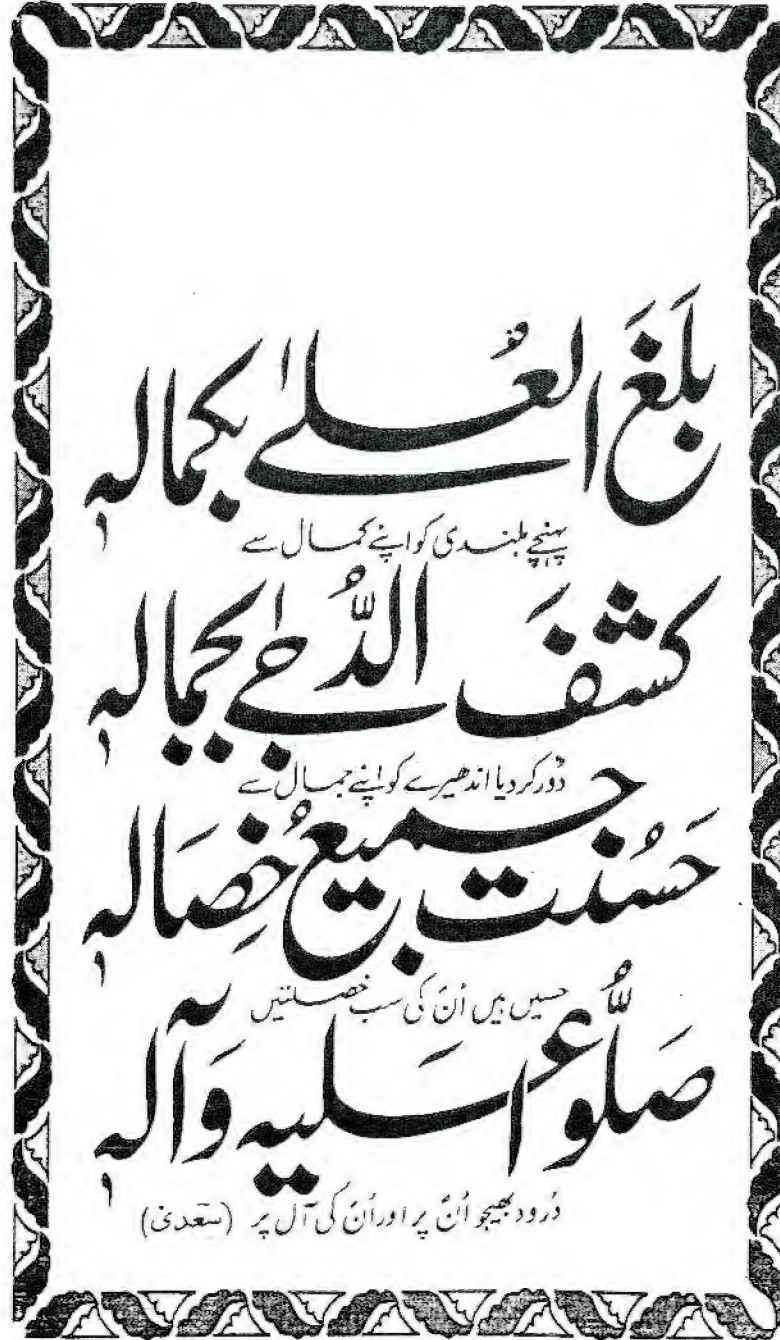 بَلَغَ الْعُلےٰ بِکمالہٖ
پہنچے بلندی کو اپنے کمال سے
کشفَ الدُّجےٰ بجمالہٖ
دُور کر دیا اندھیرے کو اپنے جمال سے
حَسُنت جمیعُ خِصَالہٖ
حسیں ہیں اُنؐ کی سب خصلتیں
صَلُّوا علیہ وَآلہٖ
دُرود بھیجو اُنؐ پر اور اُنؐ کی آل پر (سعدیؒ)